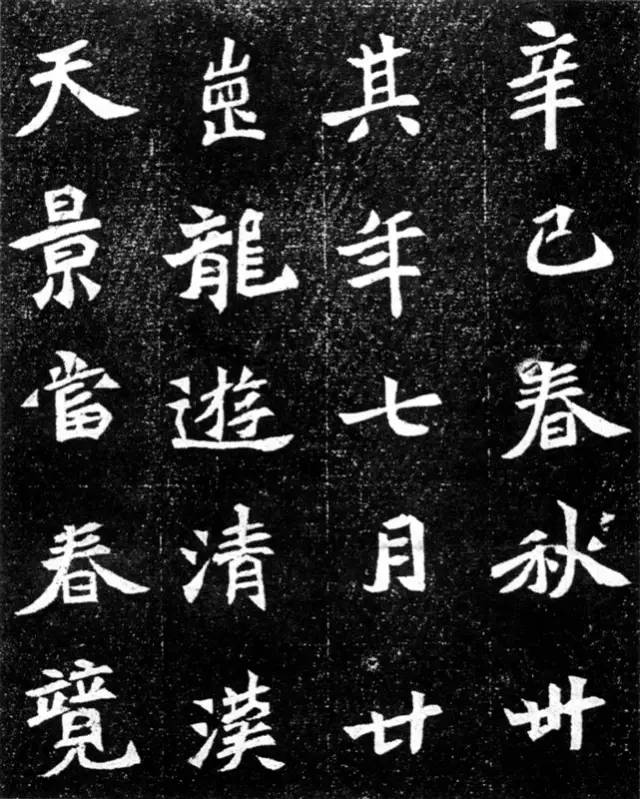 辛巳春秋卅
其年七月廿
龍遊清漢
天景當春竟